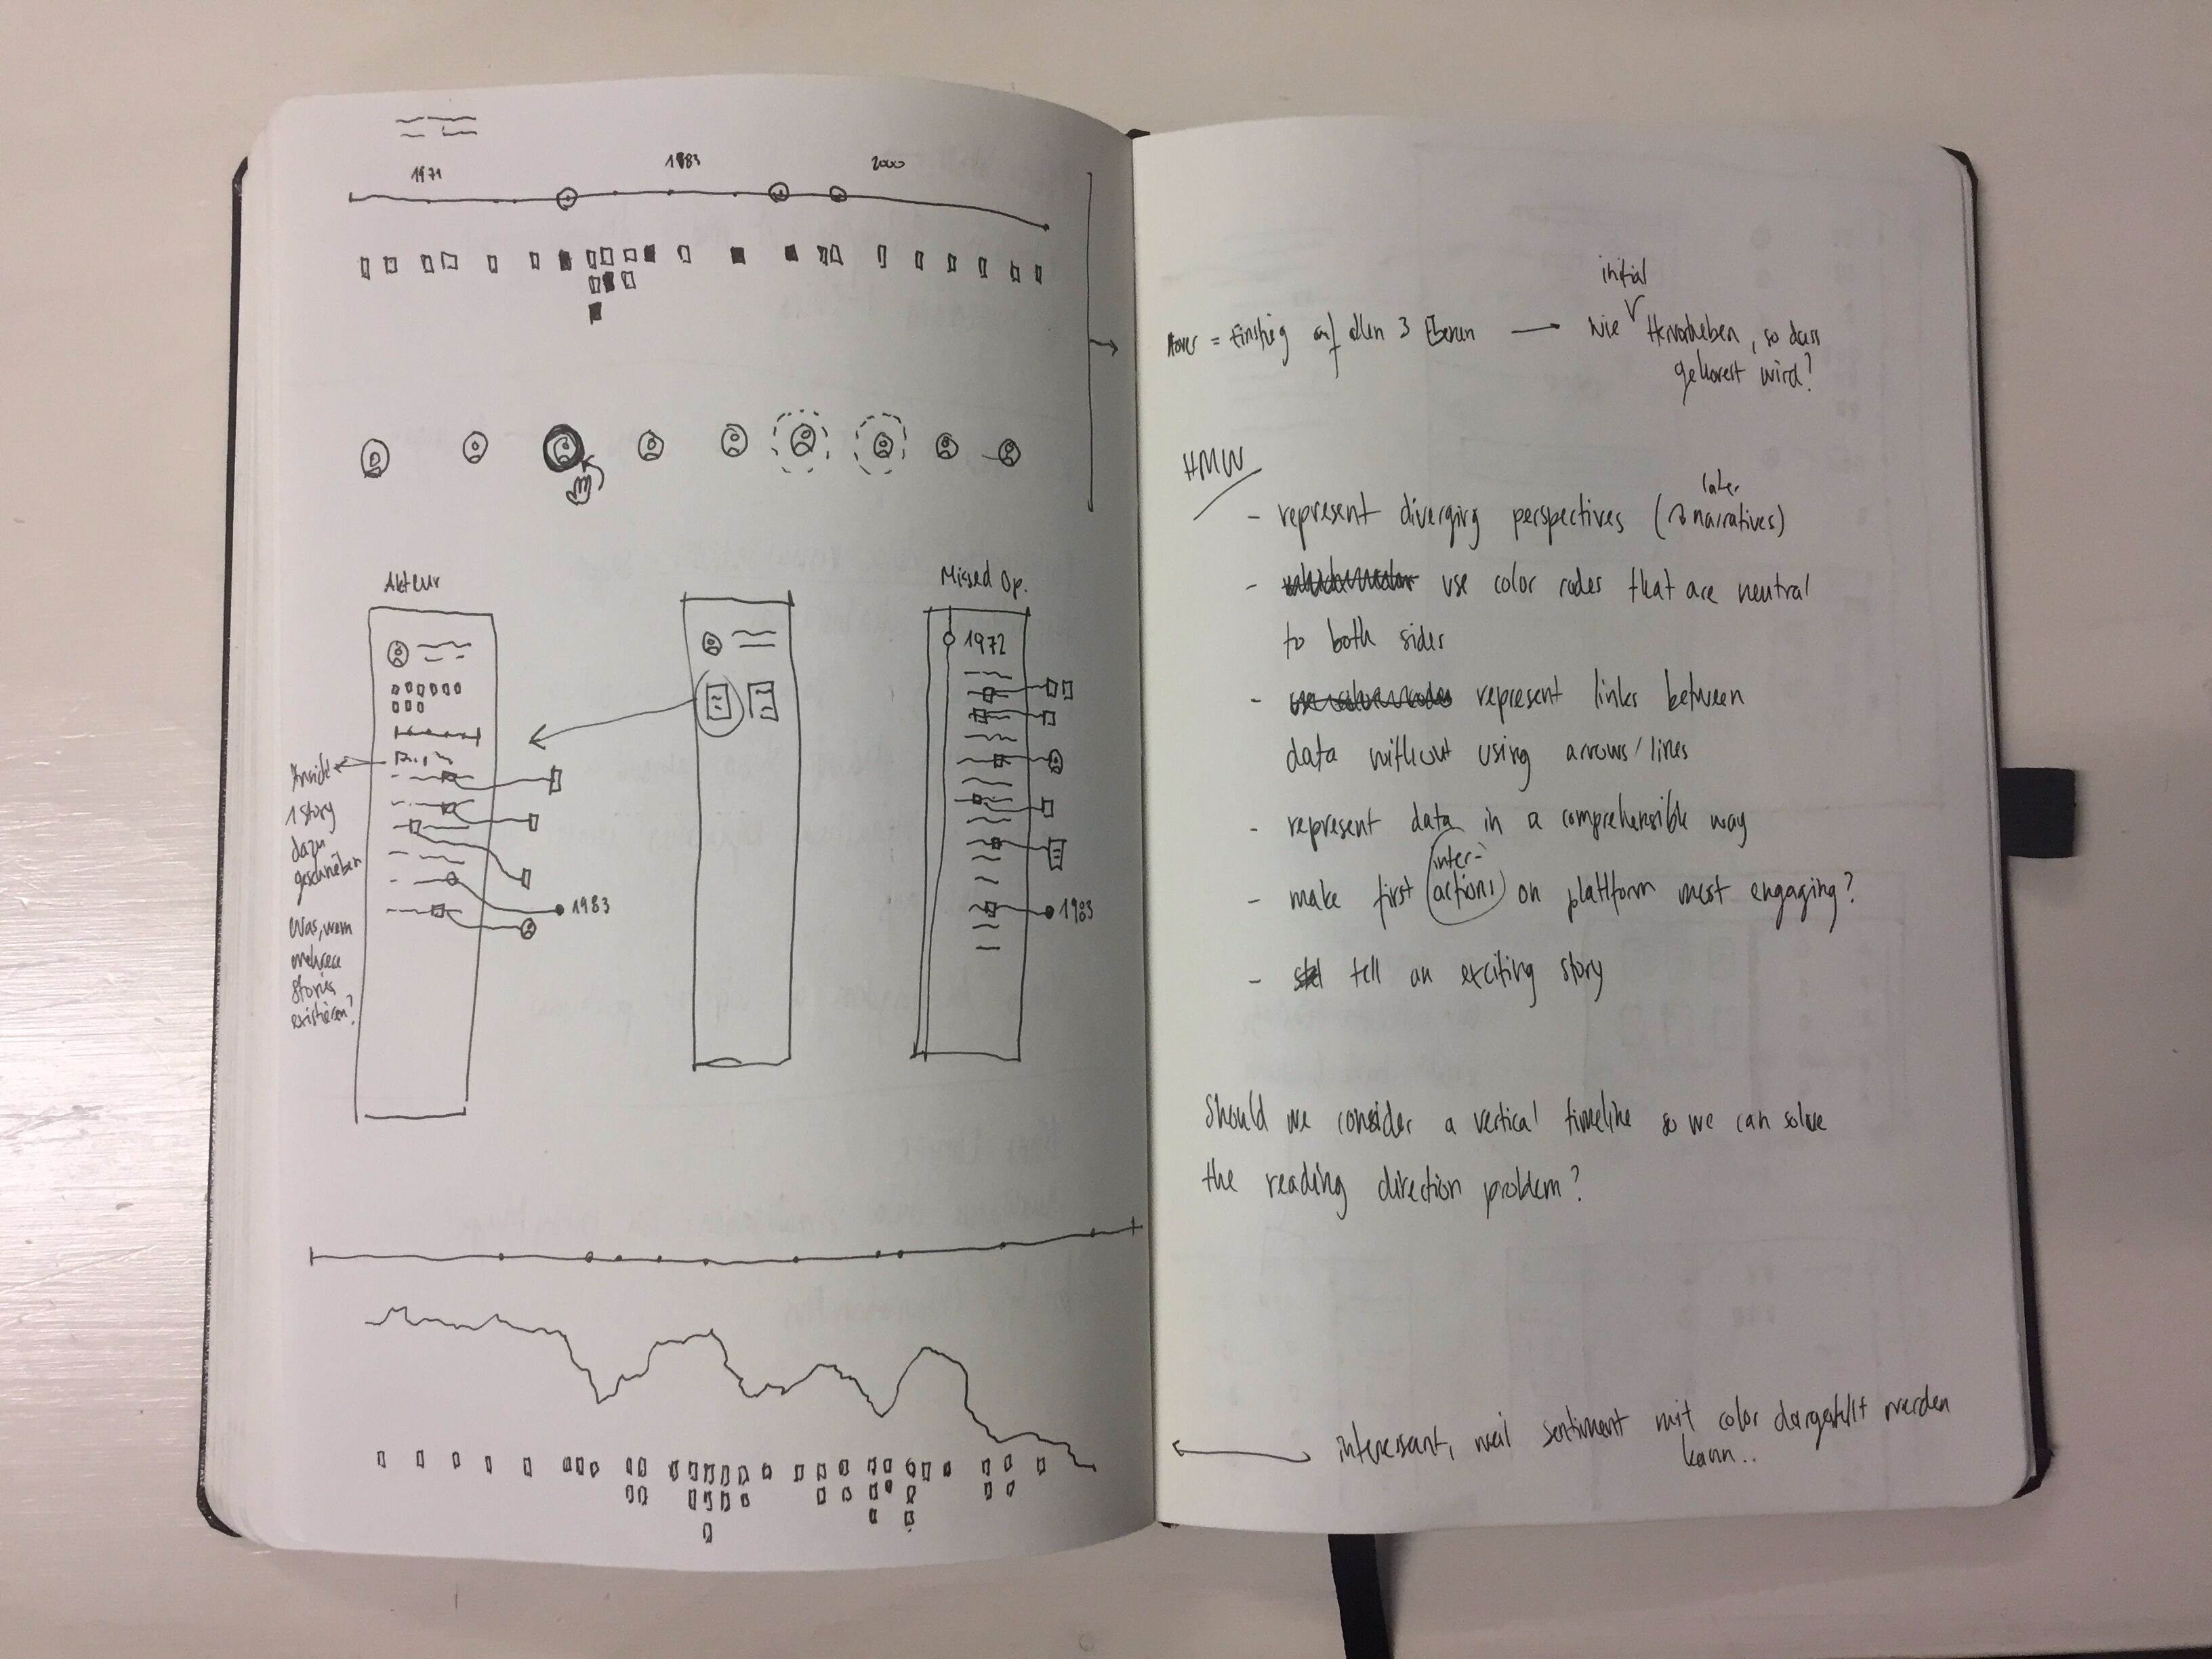 1971
1983
2000
Akteur
Missed Op.
1972
1 story
dazu
geschrieben
1983
1983
Was, wenn
mehrere
Stories
existieren?
initial
Hover = Einstieg auf allen 3 Ebenen → Wie Hervorheben, so dass
gehovert wird?
HMW
later
- represent diverging perspectives (→ narratives)
- use color codes that are neutral
to both sides
- represent links between
data without using arrows/lines
- represent data in a comprehensible way
inter-
- make first actions on plattform most engaging?
- tell an exciting story
Should we consider a vertical timeline so we can solve
the reading direction problem?
interessant, weil sentiment mit color dargestellt werden
kann..